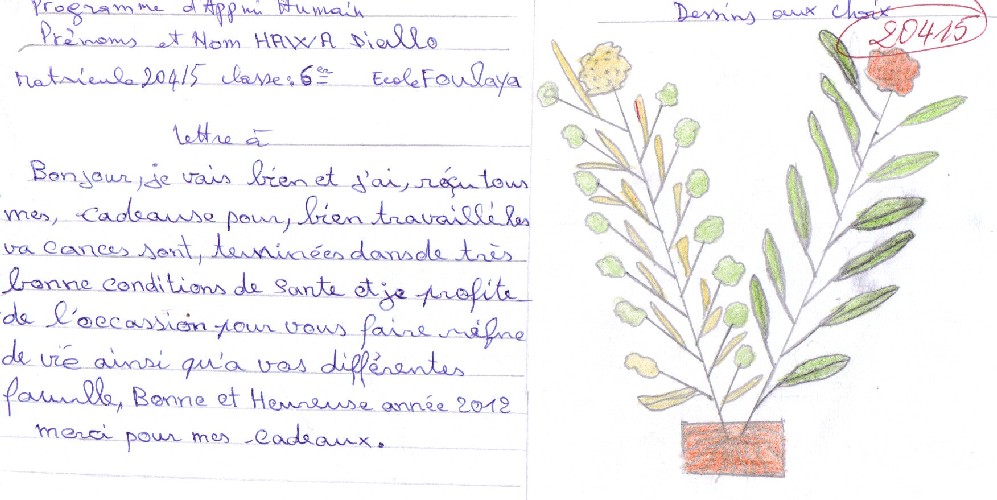 Programme d'Appui Humain
Prénoms et Nom HAWA Diallo
Matricule 20415 classe: 6e Ecole Foulaya
lettre à
Bonjour, je vais bien et j'ai, réçu tous
mes, cadeause pour, bien travaillé les
va cances sont, terminées dans de très
bonne conditions de Sante et je profite
de l'occassion pour vous faire
de vie ainsi qu'a vos différentes
famille, Bonne et Heureuse année 2012
merci pour mes cadeaux.
Dessins aux choix
20415